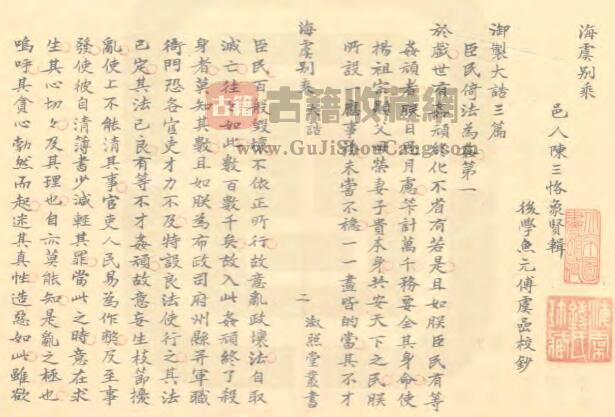 海虞别乘
邑人陳三恪象賢輯
後學魚元傅虞喦校鈔
御製大誥三篇
臣民倚法為姦第一
於戲世有姦頑終化不省有若是且如朕臣民有等
姦頑者朕日思月慮筭計萬千務要全其身命使
揚祖宗顯父母榮妻子貴本身共安天下之民朕
所設一應事務未嘗不穩一一盡皆的當其不才
海虞别乘 大誥
二
淑照堂叢書
臣民百般毀壞不依正所行故意亂政壞法自取
滅亡往往如此數百數千矣故入此姦頑終了殺
身者莫知其數且如朕為布政司府州縣并軍職
衙門恐各官吏才力不及特設良法使行之其法
已定其法已良有等不才姦頑故意妄生枝節擾
亂使上不能清其事官吏人民易為作弊及至事
發使彼自清簿書少減輕其罪當此之時意在求
生其心切々及其理也自亦莫能知是亂之極也
嗚呼其貪心勃然而起迷其真性造惡如此雖欲
古籍收藏網
www.GuJiShouCang.com